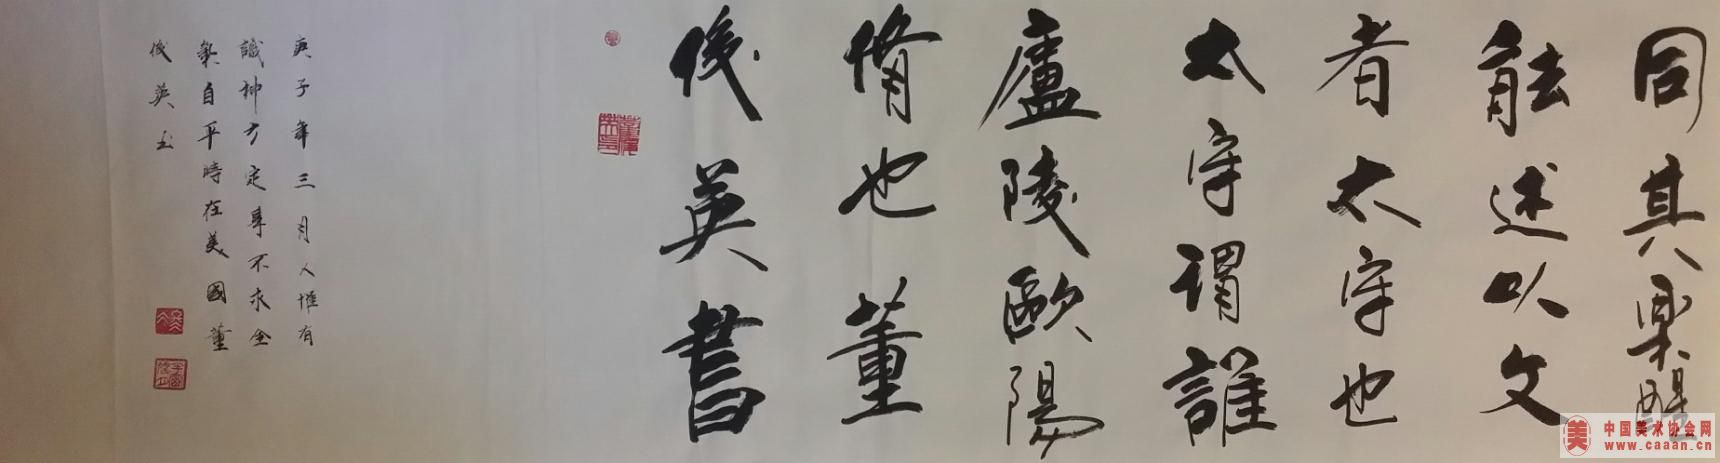 同其樂醒
能述以文
者太守也
太守謂誰
廬陵歐陽
脩也董
俊英書
庚子年三月人惟有
識神方定事不求全
氣自平時在美國董
俊英书
美
中国美术协会网
www.caaan.cn